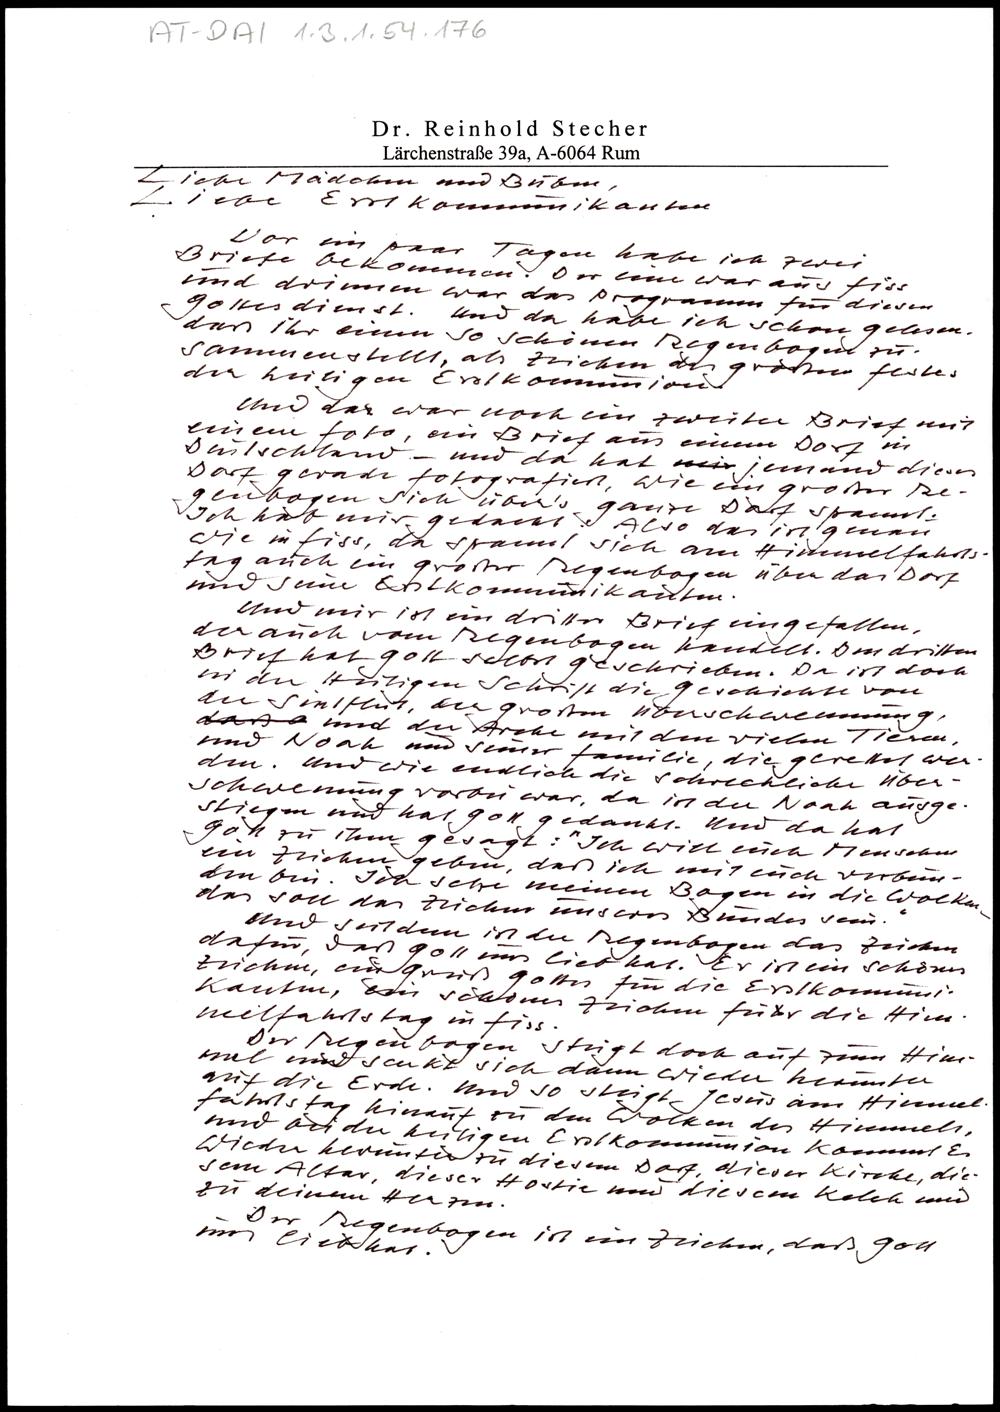 AT-DAI 1.3.1.54.176
Dr. Reinhold Stecher
Lärchenstraße 39a, A-6064 Rum
Liebe Mädchen und Buben,
Liebe Erstkommunikanten
Vor ein paar Tagen habe ich zwei
Briefe bekommen. Der eine war aus Fiss
und drinnen war das Programm für diesen
Gottesdienst. Und da habe ich schon gelesen.
daß ihr einen so schönen Regenbogen zu-
sammenstellt, als Zeichen des großen Festes
der heiligen Erstkommunion
Und das war noch ein zweiter Brief mit
einem Foto, ein Brief aus einem Dorf in
Deutschland – und da hat mir jemand dieses
Dorf gerade fotografiert, wie ein großer Re-
genbogen sich über's ganze Dorf spannt.
Ich hab mir gedacht: Also das ist genau
wie in Fiss, da spannt sich am Himmelfahrts-
tag auch ein großer Regenbogen über das Dorf
und seine Erstkommunikanten.
Und mir ist ein dritter Brief eingefallen,
der auch vom Regenbogen handelt. Den dritten
Brief hat Gott selbst geschrieben. Da ist doch
in der Heiligen Schrift die Geschichte von
der Sintflut, der großen Überschwemmung,
und der Arche mit den vielen Tieren,
und Noah und seiner Familie, die gerettet wer-
den. Und wie endlich die schreckliche Über-
schwemmung vorbei war, da ist der Noah ausge-
stiegen und hat Gott gedankt. Und da hat
Gott zu ihm gesagt: "Ich will euch Menschen
ein Zeichen geben, daß ich mit euch verbun-
den bin. Ich setze meinen Bogen in die Wolken-
das soll das Zeichen unseres Bundes sein."
Und seitdem ist der Regenbogen das Zeichen
dafür, daß Gott uns lieb hat. Er ist ein schönes
Zeichen, ein Gruß Gottes für die Erstkommuni-
kanten, ein schönes Zeichen für die Him-
melfahrtstag in Fiss.
Der Regenbogen steigt doch auf zum Him-
mel und senkt sich dann wieder herunter
auf die Erde. Und so steigt Jesus am Himmel-
fahrtstag hinauf zu den Wolken des Himmels,
und bei der heiligen Erstkommunion kommt Er
wieder herunter zu diesem Dorf, dieser Kirche, die-
sem Altar, dieser Hostie und diesem Kelch und
zu deinem Herzen.
Der Regenbogen ist ein Zeichen, daß Gott
uns lieb hat.